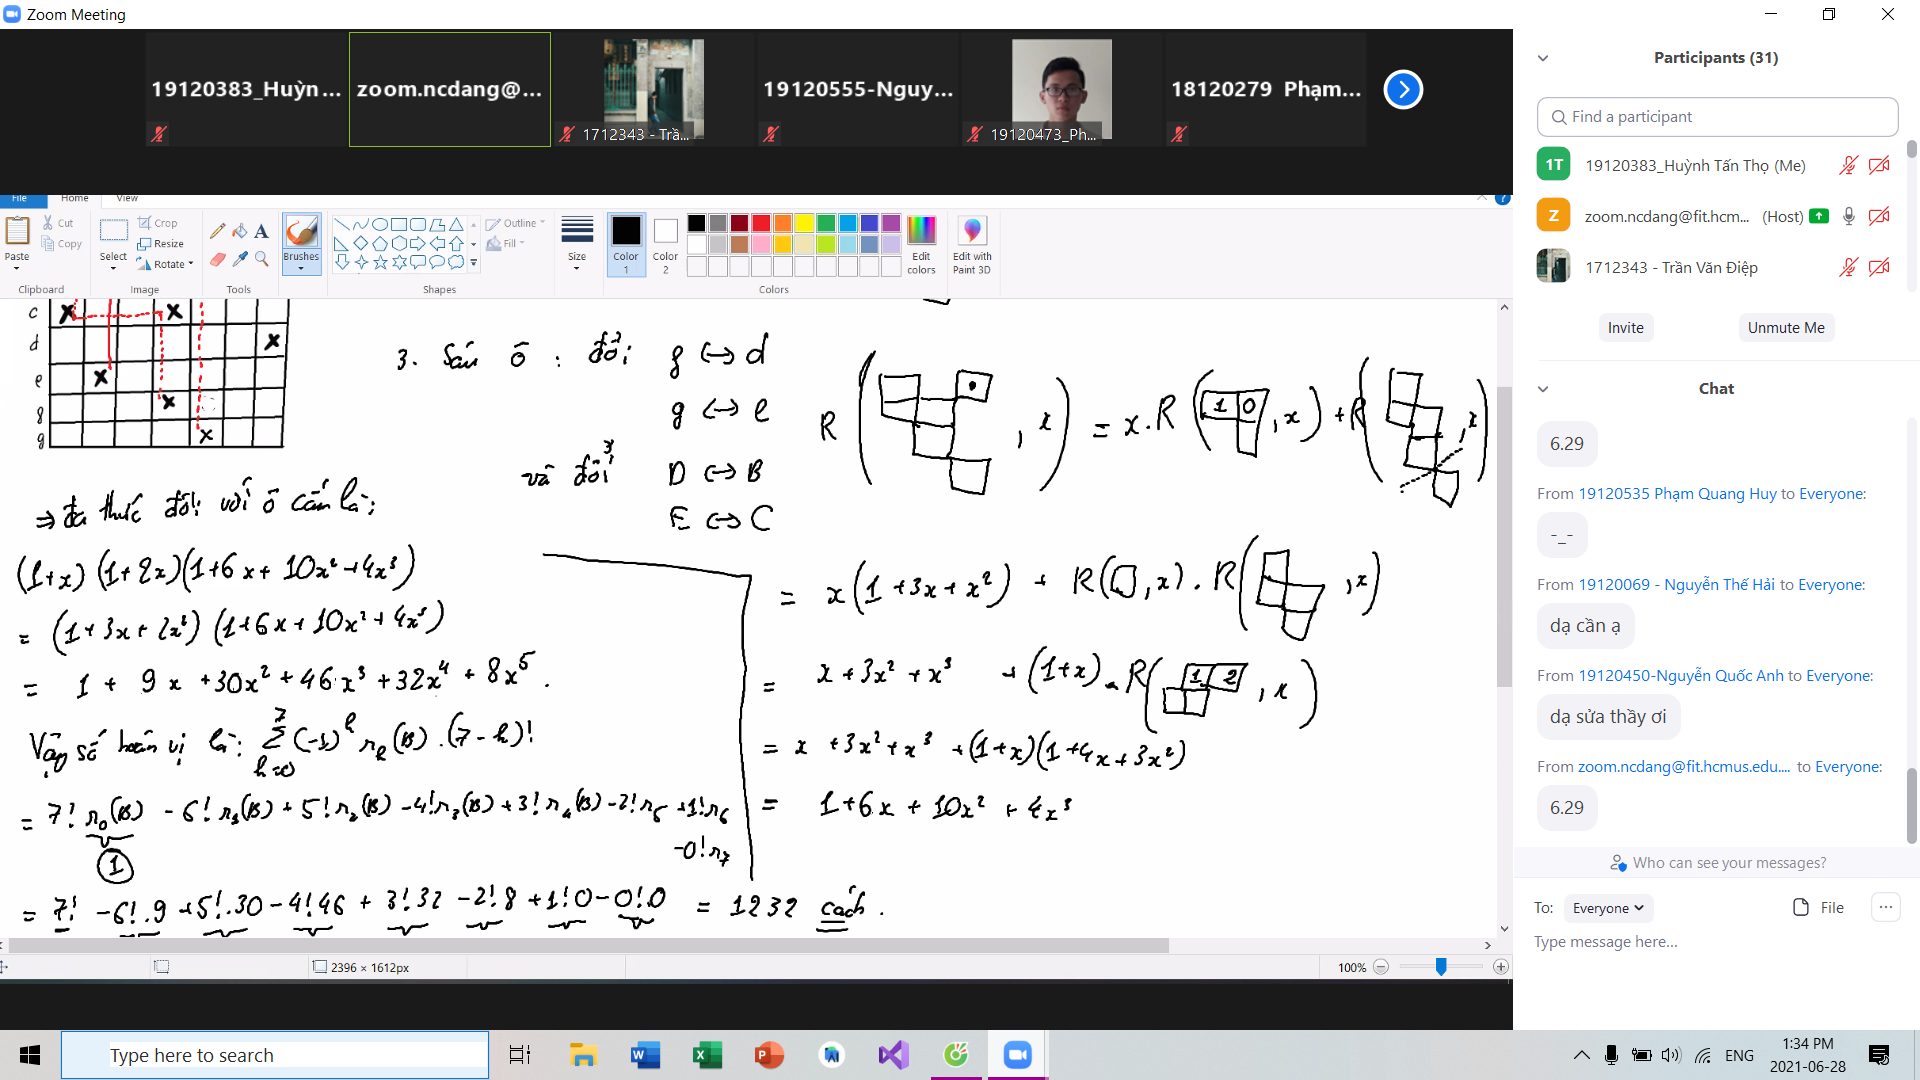 Zoom Meeting
19120383_Huỳn...
zoom.ncdang@...
1712343 - Trầ...
19120555-Nguy...
19120473_Ph...
18120279 Phạm...
File Home View
Paste
Cut
Copy
Clipboard
Select
Crop
Resize
Rotate
Image
A
Tools
Brushes
Shapes
Outline
Fill
Size
Color 1
Color 2
Edit colors
Colors
Edit with Paint 3D
c x x
d x
e x
x
g x
3. Sấu ô : đổi g ↔ d
g ↔ e
và đổi D ↔ B
E ↔ C
⇒ đa thức đối với ô cấm là:
(1+x) (1+2x)(1+6x+10x²+4x³)
= (1+3x+2x²) (1+6x+10x²+4x³)
= 1 + 9x +30x² +46x³ +32x⁴ + 8x⁵.
Vậy số hoán vị là: Σ (-1)ᵏ rₖ(B).(7-k)!
7
k=0
= 7! r₀(B) - 6! r₁(B) + 5! r₂(B) - 4! r₃(B) + 3! r₄(B) - 2! r₅ + 1! r₆
- 0! r₇
1
= 7! - 6!.9 + 5!.30 - 4!46 + 3!32 - 2!8 + 1!0 - 0!.0 = 1232 cách.
R ( , x ) = x.R ( 1 0 , x ) + R ( , x )
= x(1+3x+x²) + R( , x) . R( , x)
= x + 3x² + x³ + (1+x). R( 1 2 , x )
= x +3x²+x³ +(1+x)(1+4x+3x²)
= 1+6x+10x² + 4x³
2396 × 1612px
100%
Participants (31)
Find a participant
1T 19120383_Huỳnh Tấn Thọ (Me)
Z zoom.ncdang@fit.hcm... (Host)
1712343 - Trần Văn Điệp
Invite
Unmute Me
Chat
6.29
From 19120535 Phạm Quang Huy to Everyone:
-_-
From 19120069 - Nguyễn Thế Hải to Everyone:
dạ cần ạ
From 19120450-Nguyễn Quốc Anh to Everyone:
dạ sửa thầy ơi
From zoom.ncdang@fit.hcmus.edu.... to Everyone:
6.29
Who can see your messages?
To: Everyone
File
Type message here...
Type here to search
ENG
1:34 PM
2021-06-28